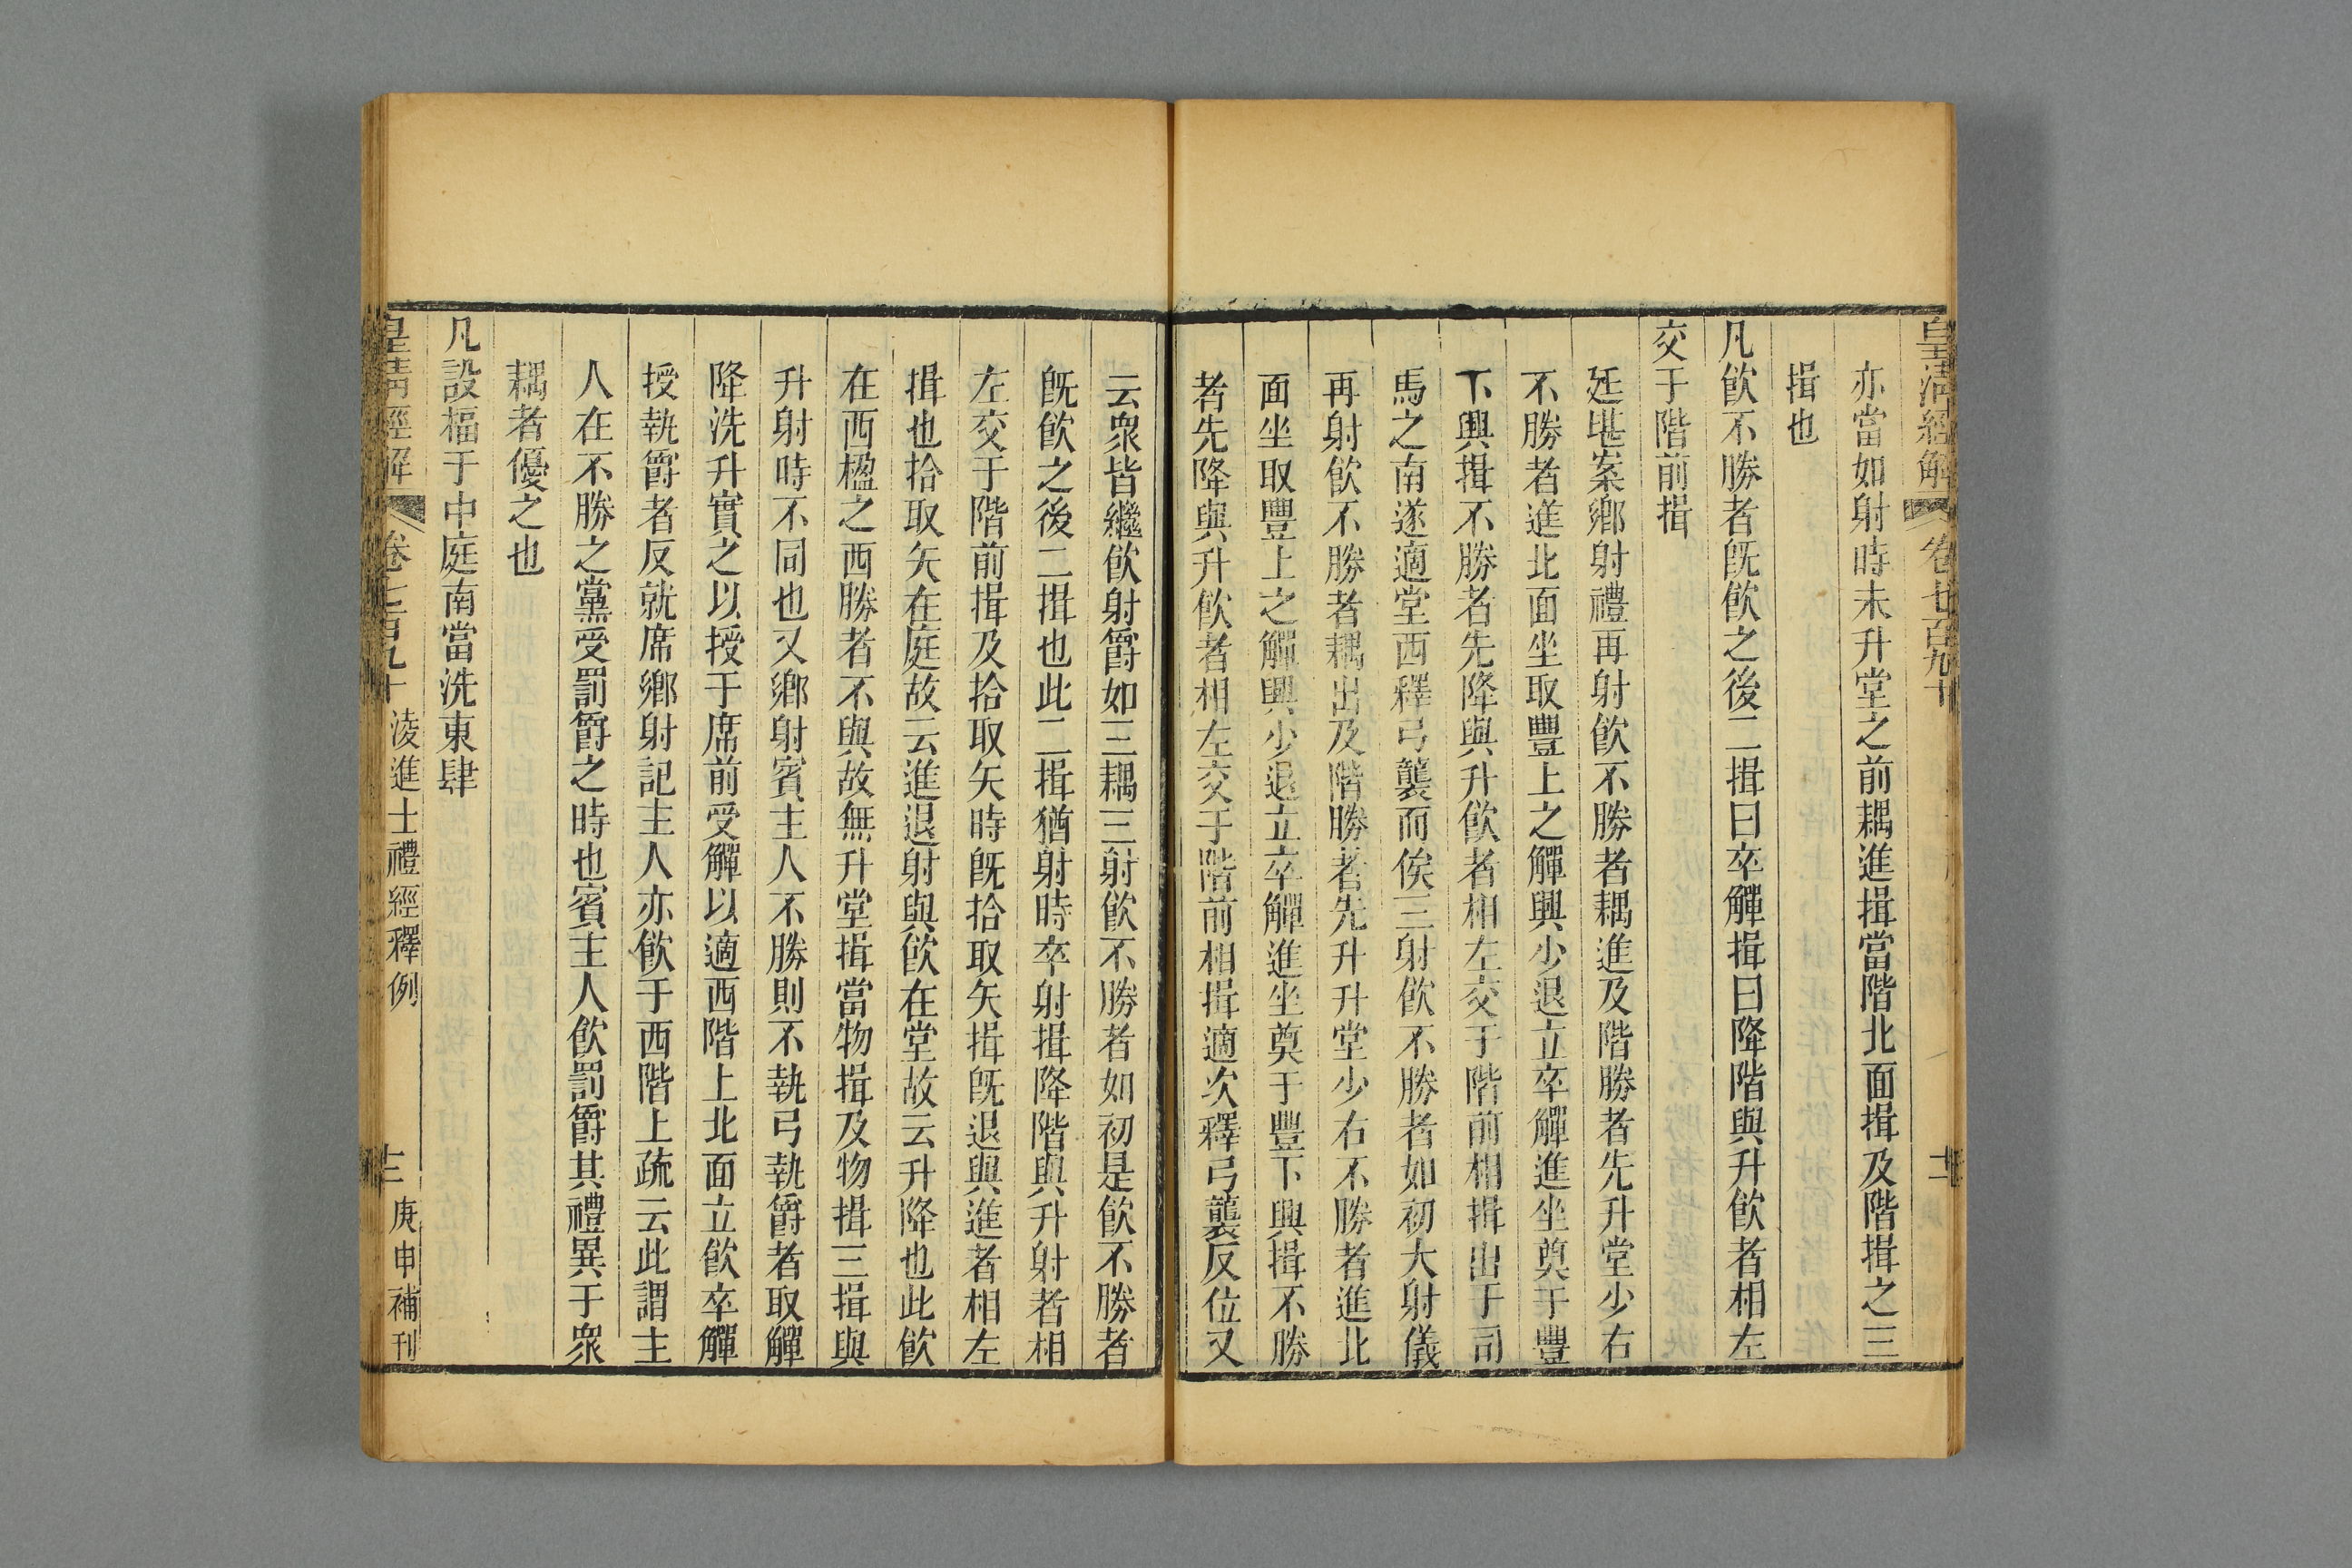 皇清經解 卷七百九十 十二
亦當如射時未升堂之前耦進揖當階北面揖及階揖之三
揖也
凡飲不勝者旣飲之後二揖曰卒觶揖曰降階與升飲者相左
交于階前揖
廷堪案鄉射禮再射飲不勝者耦進及階勝者先升堂少右
不勝者進北面坐取豐上之觶興少退立卒觶進坐奠于豐
下興揖不勝者先降與升飲者相左交于階前相揖出于司
馬之南遂適堂西釋弓襲而俟三射飲不勝者如初大射儀
再射飲不勝者耦出及階勝者先升升堂少右不勝者進北
面坐取豐上之觶興少退立卒觶進坐奠于豐下興揖不勝
者先降與升飲者相左交于階前相揖適次釋弓襲反位又
云衆皆繼飲射爵如三耦三射飲不勝者如初是飲不勝者
旣飲之後二揖也此二揖猶射時卒射揖降階與升射者相
左交于階前揖及拾取矢時旣拾取矢揖旣退與進者相左
揖也拾取矢在庭故云進退射與飲在堂故云升降也此飲
在西楹之西勝者不與故無升堂揖當物揖及物揖三揖與
升射時不同也又鄉射賓主人不勝則不執弓執爵者取觶
降洗升實之以授于席前受觶以適西階上北面立飲卒觶
授執爵者反就席鄉射記主人亦飲于西階上疏云此謂主
人在不勝之黨受罰爵之時也賓主人飲罰爵其禮異于衆
耦者優之也
凡設楅于中庭南當洗東肆
皇清經解 卷七百九十 淩進士禮經釋例 十二 庚申補刊